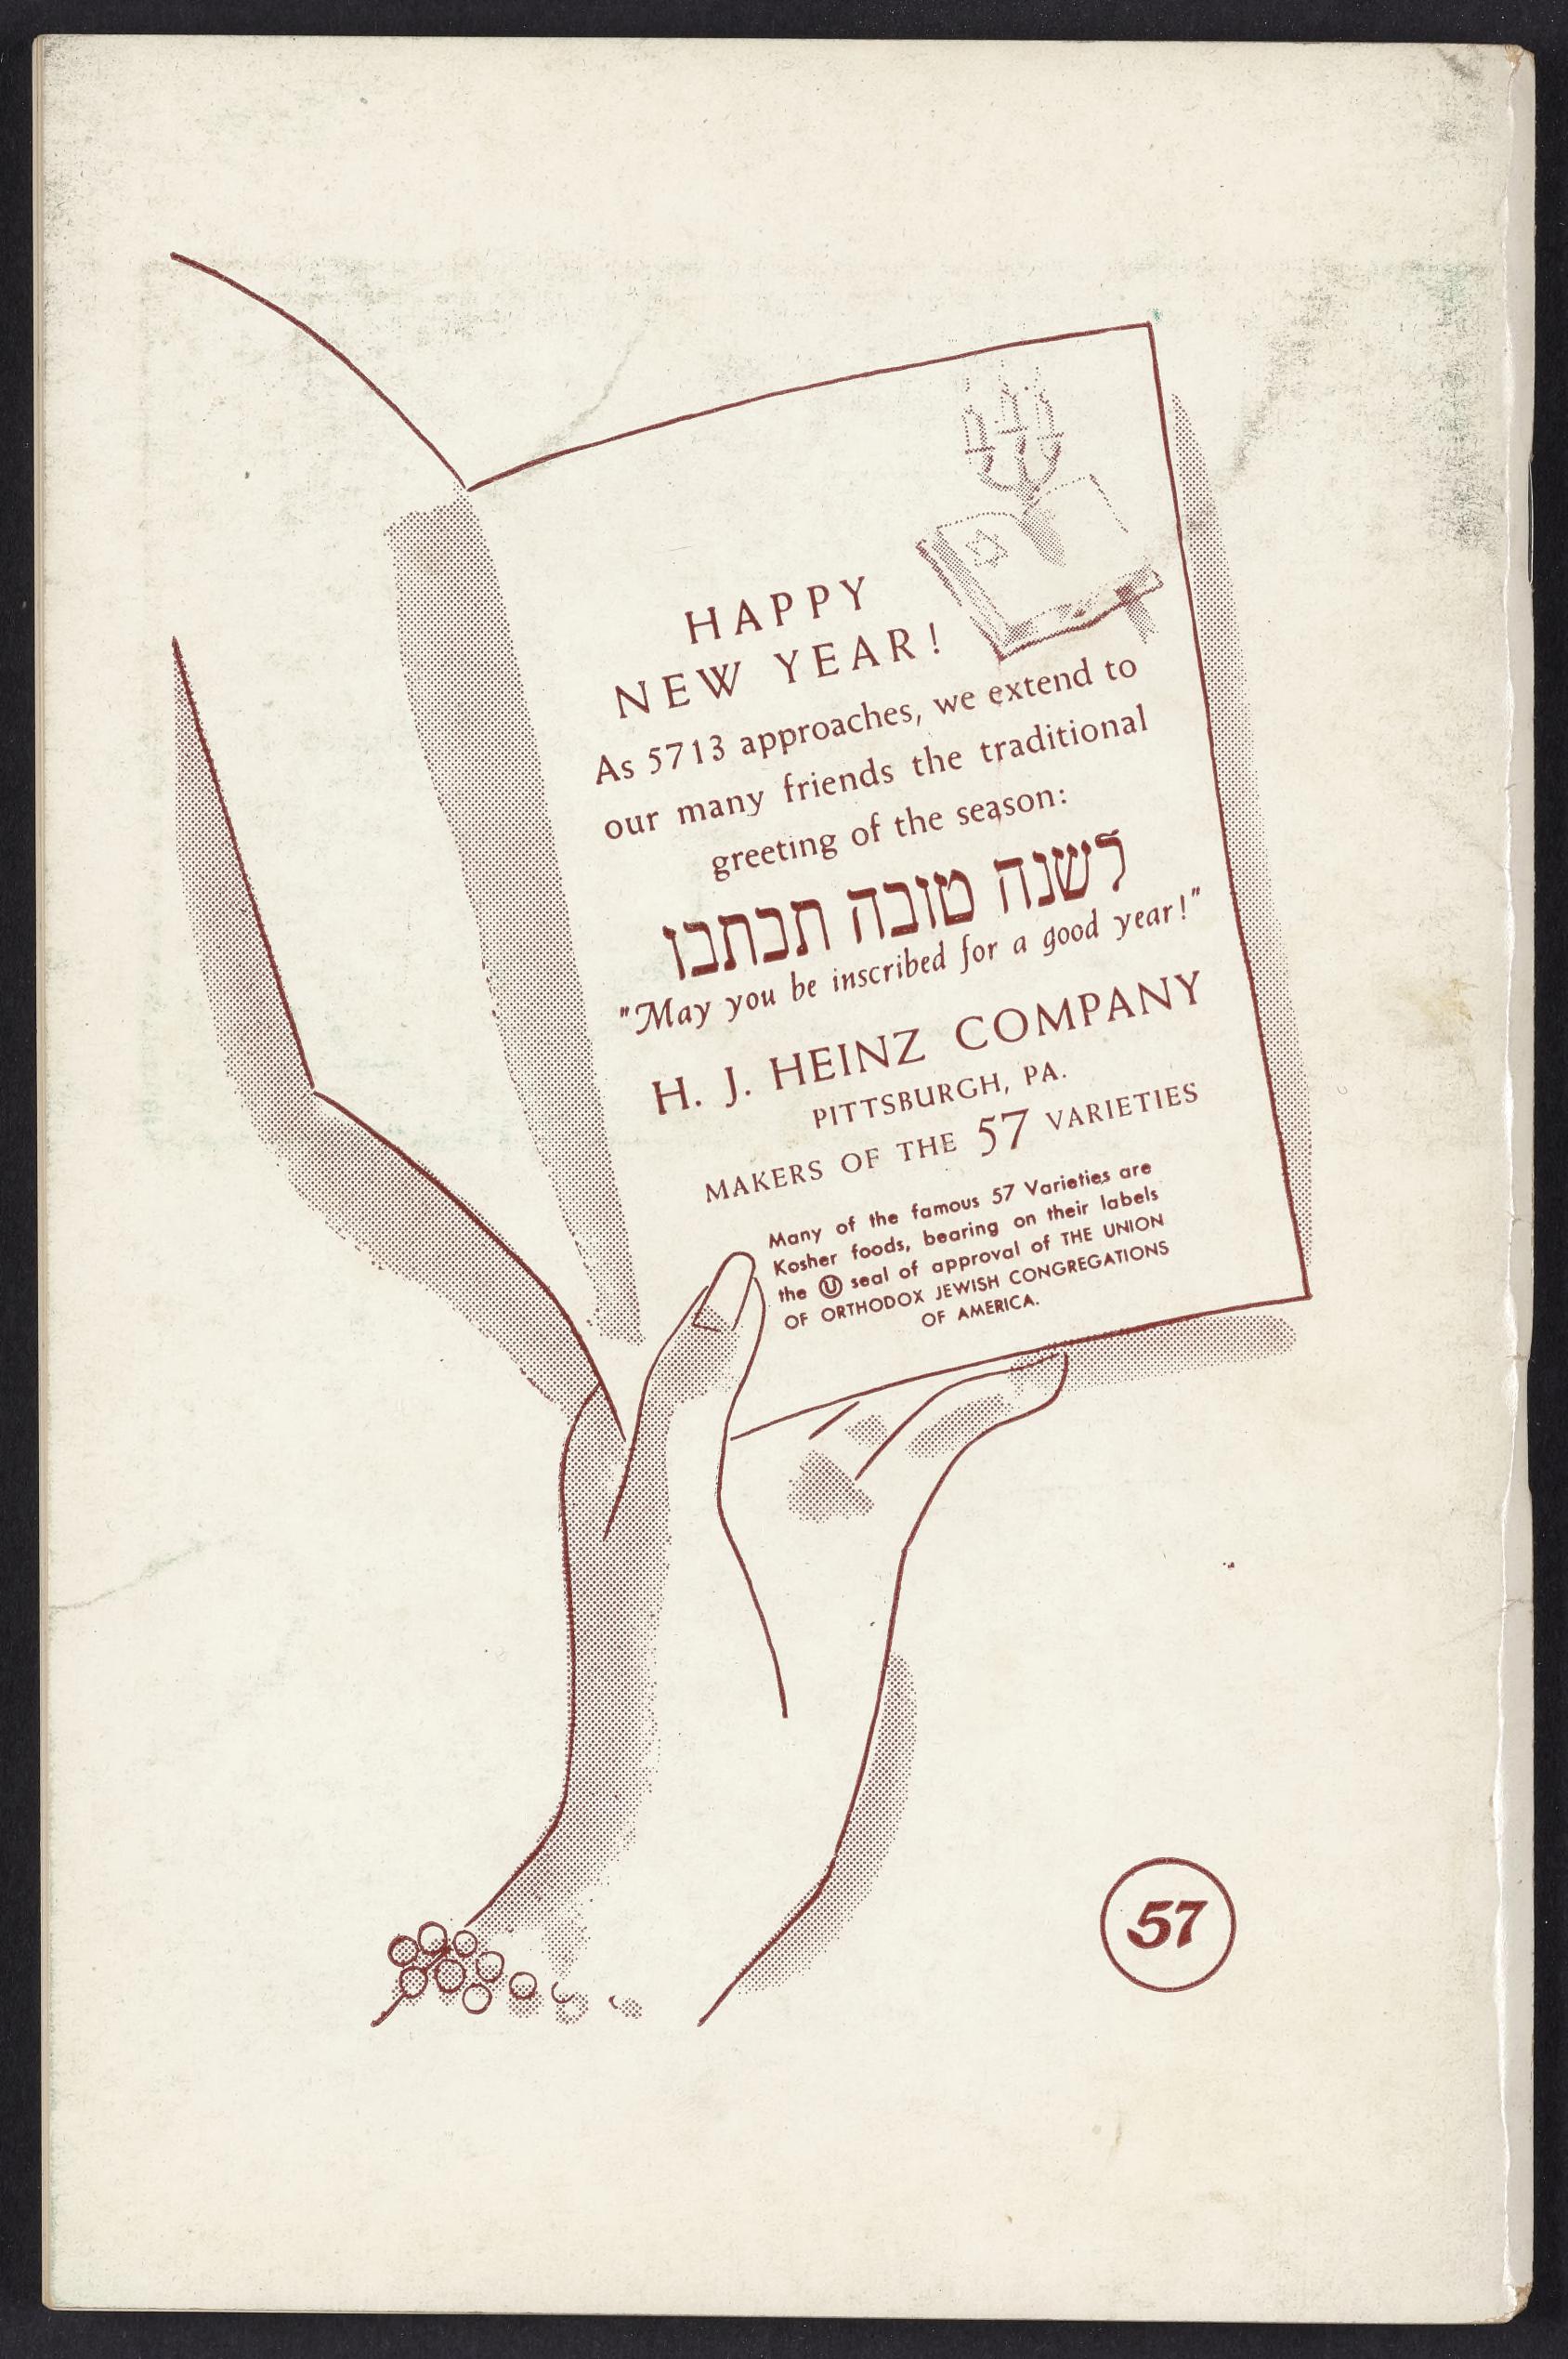 HAPPY
NEW YEAR!
As 5713 approaches, we extend to
our many friends the traditional
greeting of the season:
לשנה טובה תכתבו
"May you be inscribed for a good year!"
H. J. HEINZ COMPANY
PITTSBURGH, PA.
MAKERS OF THE 57 VARIETIES
Many of the famous 57 Varieties are
Kosher foods, bearing on their labels
the Ⓤ seal of approval of THE UNION
OF ORTHODOX JEWISH CONGREGATIONS
OF AMERICA.
57